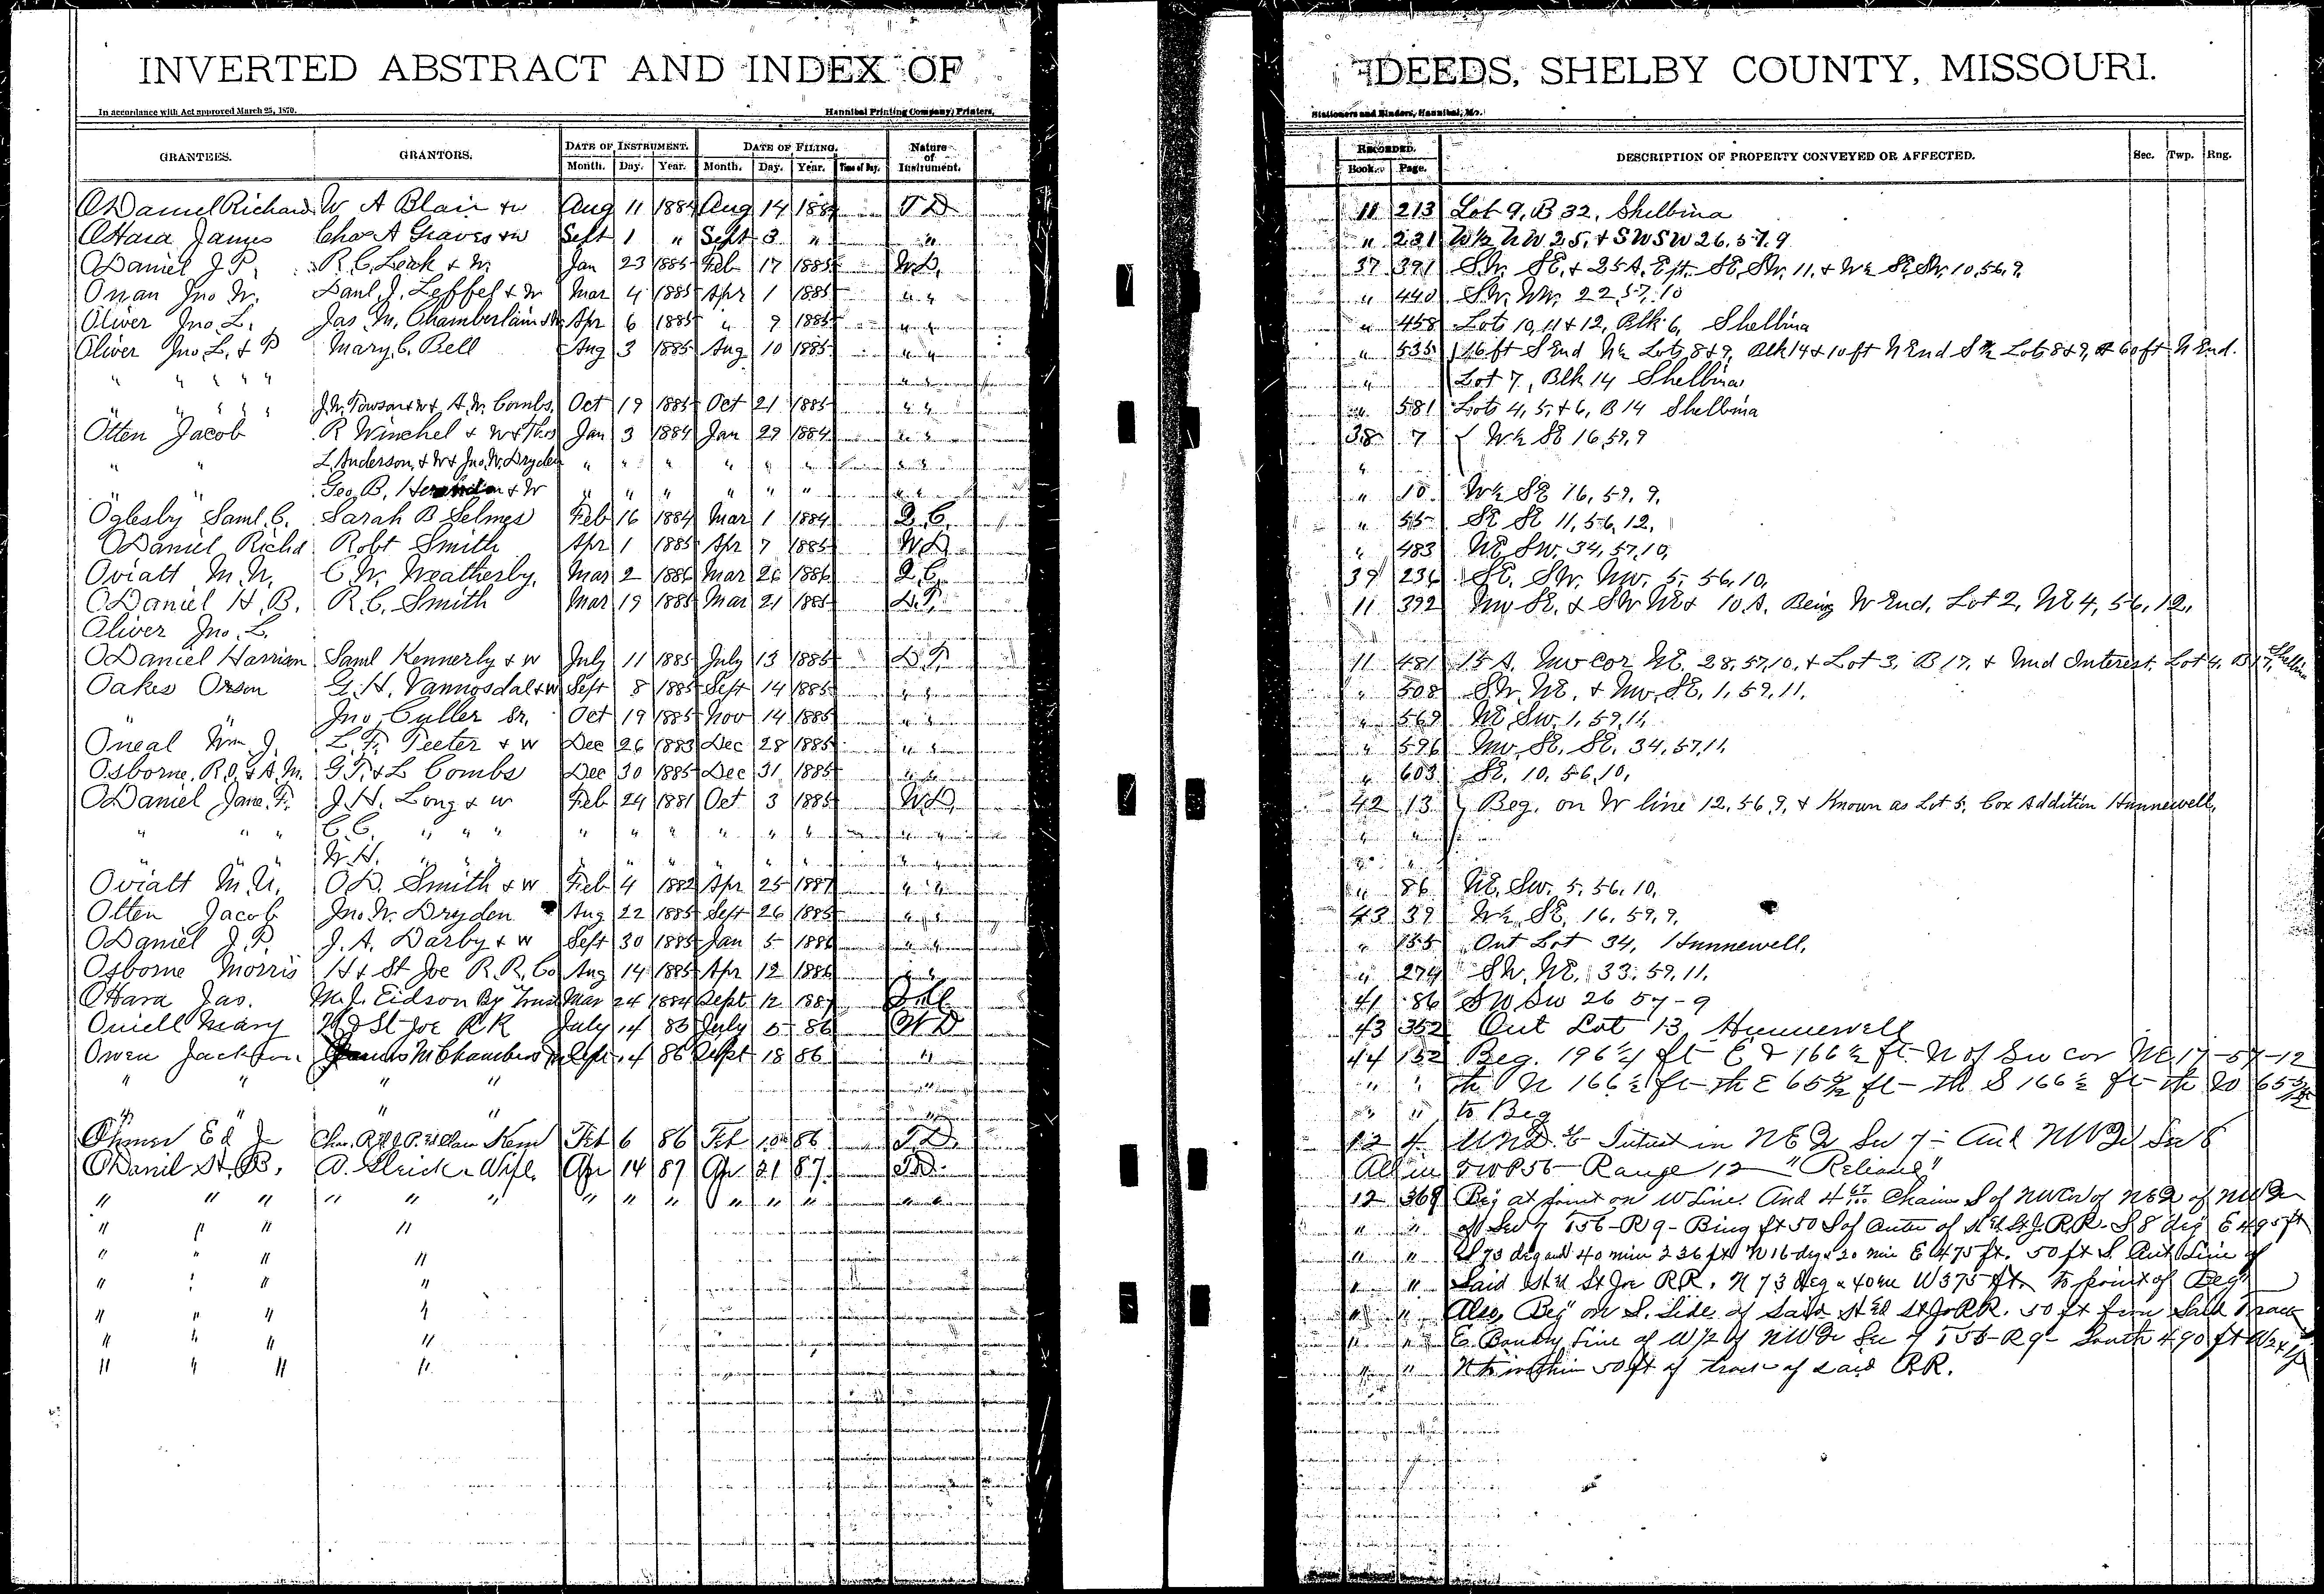 INVERTED ABSTRACT AND INDEX OF DEEDS, SHELBY COUNTY, MISSOURI.
In accordance with Act approved March 25, 1870. Hannibal Printing Company, Printers, Stationers and Binders, Hannibal, Mo.
GRANTEES. GRANTORS. DATE OF INSTRUMENT. DATE OF FILING. Nature of Instrument. RECORDED. DESCRIPTION OF PROPERTY CONVEYED OR AFFECTED. Sec. Twp. Rng.
Month. Day. Year. Month. Day. Year. Time of Day. Book. Page.
ODaniel Richard W A Blair & w Aug 11 1884 Aug 14 1884 T D 11 213 Lot 9, B 32, Shelbina
OHara James Chas A Graves & w Sept 1 " Sept 3 " " " 231 W½ NW 25, & SWSW 26.57.9
ODaniel J P. R. C. Leak & W. Jan 23 1885 Feb 17 1885 W.D. 37 391 SW. SE. & 25 A. E pt. SE. SW. 11, & W½ SE. SW. 10, 56, 9.
Onan Jno W. Danl. J. Leffel & W Mar 4 1885 Apr 1 1885 " " " 440 SW. NW. 22, 57, 10
Oliver Jno L. Jas. M. Chamberlain & W Apr 6 1885 " 9 1885 " " " 458 Lots 10, 11 & 12, Blk 6, Shelbina
Oliver Jno L. & P Mary C. Bell Aug 3 1885 Aug 10 1885 " " " 535 16 ft S End N½ Lots 8 & 9, Blk 14 & 10 ft N End S½ Lots 8 & 9, & 60 ft N End.
" " " " " " " " Lot 7, Blk 14 Shelbina
" " " " " J. W. Towson & w & A. W. Combs, Oct 19 1885 Oct 21 1885 " " " 581 Lots 4, 5, & 6, B 14 Shelbina
Otten Jacob R Winchel & W & Thos Jan 3 1884 Jan 29 1884 " " 38 7 W½ SE 16, 59, 9
" " L. Anderson, & W & Jno. W. Dryden " " " " " " " " "
" " Geo. B. & W " " " " " " " " " 10 W½ SE 16, 59, 9.
Oglesby Saml. C. Sarah B Selmes Feb 16 1884 Mar 1 1884 Q. C. " 55 SE SE 11, 56, 12,
ODaniel Richd Robt Smith Apr 1 1885 Apr 7 1885 W.D. " 483 NE SW. 34, 57, 10,
Oviatt M. N. C. W. Weatherby. Mar 2 1886 Mar 26 1886 Q. C. 39 236 SE. SW. NW. 5, 56, 10,
ODaniel H. B. R. C. Smith Mar 19 1885 Mar 21 1885 D.T. 11 392 NW SE. & SW NE & 10 A. Being W End, Lot 2, NE 4, 56, 12,
Oliver Jno. L.
ODaniel Harrison Saml Kennerly & w July 11 1885 July 13 1885 D.T. 11 481 15 A. NW cor NE. 28, 57, 10, & Lot 3, B 17, & Und Interest, Lot 4, B 17, Shelbina
Oakes Orson G. H. Vannosdal & w Sept 8 1885 Sept 14 1885 " " " 508 SW. NE. & NW. SE. 1, 59, 11.
" " Jno. Culler Sr. Oct 19 1885 Nov 14 1885 " " " 569 NE SW. 1, 59, 11
Oneal Wm J. L. F. Teeter & w Dec 26 1883 Dec 28 1885 " " " 596 NW. SE. SE. 34, 57, 11,
Osborne, R. O. & A. M. G. T. & L Combs Dec 30 1885 Dec 31 1885 " " " 603 SE. 10, 56, 10,
ODaniel Jane. F. J. H. Long & w Feb 24 1881 Oct 3 1885 W.D. 42 13 Beg. on W line 12, 56, 9, & Known as Lot 5, Cox Addition Hunnewell,
" " " C. C. " " " " " " " " " " " " "
" " " W. H. " " " " " " " " " " " " "
Oviatt M. N. O. D. Smith & w Feb 4 1882 Apr 25 1887 " " " 86 NE. SW. 5, 56, 10,
Otten Jacob Jno. W. Dryden Aug 22 1885 Sept 26 1885 " " 43 39 W½ SE. 16, 59, 9,
ODaniel J. P. J. A. Darby & w Sept 30 1885 Jan 5 1886 " " " 155 Out Lot 34, Hunnewell,
Osborne Morris H & St Joe R. R. Co Aug 14 1885 Apr 12 1886 " " " 274 SW. NE. 33, 59, 11.
OHara Jas. M. J. Eidson By Mar 24 1884 Sept 12 1887 41 86 SW SW 26 57-9
Oniell Mary H & St Joe RR July 14 83 July 5 86 W D 43 352 Out Lot 13, Hunnewell
Owen Jackson James M Chambers Sept 14 86 Sept 18 86 " 44 152 Beg. 196 ft E & 166½ ft N of SW cor NE 17-57-12
" " " " " " " th N 166½ ft th E 65 ft - th S 166½ ft th W 65
" " " " " " " to Beg
Ohmer Ed J Feb 6 86 Feb 10 86 T.D. 12 4 UND Intrest in NE Qr Sec 7 - And NW Qr Sec 8
ODanil H. B. A. & Wife. Apr 14 87 Apr 21 87 T.D. All in TWP 56 - Range 12
" " " " " " " " " " " " " 12 369 Beg at point on W Line. And 4 67/100 Chains S of NW Cor of NE Qr of NW Qr
" " " " " " of Sec 7 T56-R9- Being ft 50 S of Center of H & St J. RR. S 8 deg E 495 ft
" " " " " " S 73 deg and 40 min 236 ft N 16 deg & 20 min E 475 ft. 50 ft S. Line of
" " " " " " Said H & St Joe RR. N 73 deg & 40 W 375 ft. to point of Beg
" " " " " " Also, Beg on S. Side of Said H & St Jo RR. 50 ft from Said Track
" " " " " " E. Boundry Line of W/2 of NW Qr Sec 7 T56-R9- South 490 ft W
" " " " " " N to within 50 ft of track of said RR.